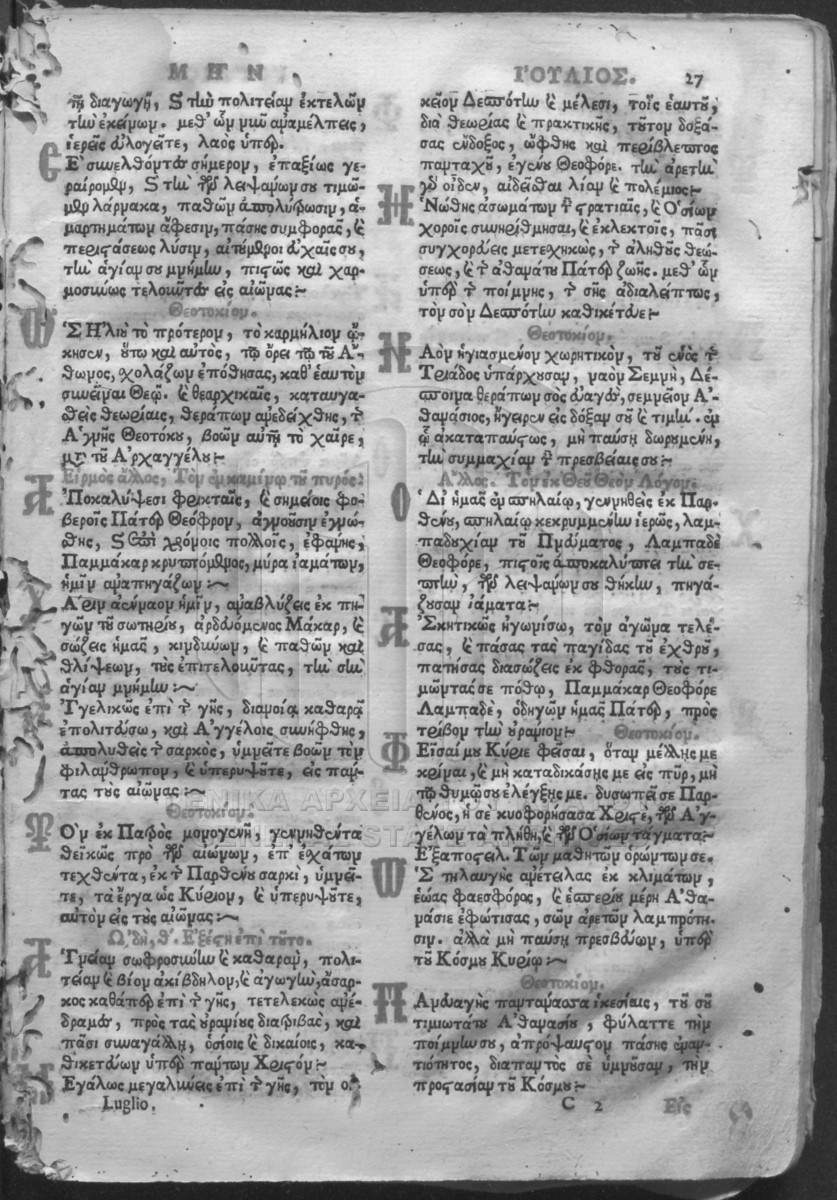 ΜΗΝ ἸΟΥΛΙΟΣ. 27
τῇ διαγωγῇ, καὶ τὴν πολιτείαν ἐκτελῶν
τὴν ἐκείνων. μεθ' ὧν νῦν ἀναμέλπεις,
ἱερεῖς εὐλογεῖτε, λαὸς ὑπερ.
Συνελθόντες σήμερον, ἐπαξίως γε-
ραίρομεν, καὶ τὴν τῶν λειψάνων σου τιμῶ-
μεν λάρνακα, παθῶν ἀπολύτρωσιν, ἁ-
μαρτημάτων ἄφεσιν, πάσης συμφορᾶς, καὶ
περιστάσεως λύσιν, αἰτούμενοι εὐχαῖς σου,
τὴν ἁγίαν σου μνήμην, πιστῶς καὶ χαρ-
μοσύνως τελοῦντες εἰς αἰῶνας:
Θεοτοκίον.
Ὡς Ηλιοὺ τὸ πρότερον, τὸ καρμήλιον ᾤ-
κησεν, οὕτω καὶ αὐτὸς, τῷ ὄρει τῷ τοῦ Α-
θωνος, σχολάζων ἐπόθησας, καθ' ἑαυτὸν
συνεῖναι Θεῷ. καὶ θεαρχικαῖς, καταυγα-
σθεὶς θεωρίαις, θεράπων ἀνεδείχθης, τῆς
Αγνῆς Θεοτόκου, βοῶν αὐτῇ τὸ χαῖρε,
μετὰ τοῦ Αρχαγγέλου:
Εἱρμὸς ἄλλος, Τὸν ἐν καμίνῳ τοῦ πυρός:
Ἀποκαλύψεσι φρικταῖς, καὶ σημείοις φο-
βεροῖς Πάτερ Θεόφρον, ἁγνοῦσιν ἐγνώ-
σθης, καὶ ἐπὶ χρόνοις πολλοῖς, ἐφάνης,
Παμμάκαρ κρυπτόμενος, μύρα ἰαμάτων,
ἡμῖν ἀναπηγάζων:
Χάριν ἀένναον ἡμῖν, ἀναβλύζεις ἐκ πη-
γῶν τοῦ σωτηρίου, ἀρδευόμενος Μάκαρ, καὶ
σώζεις ἡμᾶς, κινδύνων, καὶ παθῶν καὶ
θλίψεων, τοὺς ἐπιτελοῦντας, τὴν σὴν
ἁγίαν μνήμην:
Ἀγγελικῶς ἐπὶ τῆς γῆς, διανοίᾳ καθαρᾷ
ἐπολιτεύσω, καὶ Αγγέλοις συνήφθης,
ἀπολυθεὶς τῆς σαρκὸς, ὑμνεῖτε βοῶν τὸν
φιλάνθρωπον, καὶ ὑπερυψοῦτε, εἰς πάν-
τας τοὺς αἰῶνας:
Θεοτοκίον.
Τὸν ἐκ Πατρὸς μονογενῆ, γεννηθέντα
θεϊκῶς πρὸ τῶν αἰώνων, ἐπ' ἐσχάτων
τεχθέντα, ἐκ τῆς Παρθένου σαρκὶ, ὑμνεῖ-
τε, τὰ ἔργα ὡς Κύριον, καὶ ὑπερυψοῦτε,
αὐτὸν εἰς τοὺς αἰῶνας:
Ωδὴ, θ'. Εξέστη ἐπὶ τούτῳ.
Ἁγνείαν σωφροσύνην καὶ καθαρὰν, πολι-
τείαν καὶ βίον ἀκίβδηλον, καὶ ἀγωγὴν, ἄσαρ-
κος καθάπερ ἐπὶ τῆς γῆς, τετελεκὼς ἀνέ-
δραμες, πρὸς τὰς οὐρανίους διατριβὰς, καὶ
πᾶσι συναγάλλῃ, ὁσίοις καὶ δικαίοις, κα-
θικετεύων ὑπὲρ πάντων Χριστόν:
Μεγάλως μεγαλύνεις ἐπὶ τῆς γῆς, τὸν οἰ-
Luglio.
κεῖον Δεσπότην καὶ μέλεσι, τοῖς ἑαυτοῦ,
διὰ θεωρίας καὶ πρακτικῆς, τοῦτον δοξά-
σας ἐνδόξως, ὤφθης καὶ περίβλεπτος
πανταχοῦ, ἐγένου Θεοφόρε. τὴν ἀρετὴν
γὰρ οἶδεν, αἰδεῖσθαι λίαν καὶ πολέμιος:
Ἡνώθης ἀσωμάτων ταῖς στρατιαῖς, καὶ Οσίων
χοροῖς συνηρίθμησαι, καὶ ἐκλεκτοῖς, πᾶσι
συγχορεύεις μετεχηκὼς, τῆς ἀληθοῦς θεώ-
σεως, καὶ τῆς ἀθανάτου Πάτερ ζωῆς. μεθ' ὧν
ὑπὲρ τῆς ποίμνης, τῆς σῆς ἀδιαλείπτως,
τὸν σὸν Δεσπότην καθικέτευε:
Θεοτοκίον.
Ναὸν ἡγιασμένον χωρητικὸν, τοῦ ἑνὸς τῆς
Τριάδος ὑπάρχουσαν, ναὸν Σεμνὴ, Δέ-
σποινα θεράπων σὸς εὐαγὴς, σεμνεῖον Α-
θανάσιος, ἤγειρεν εἰς δόξαν σοῦ καὶ τιμὴν. ἐν
ᾧ ἀκαταπαύστως, μὴ παύσῃ δωρουμένη,
τὴν συμμαχίαν ταῖς πρεσβείαις σου:
Αλλος. Τὸν ἐκ Θεοῦ Θεὸν Λόγον.
Ὁ δι' ἡμᾶς ἐν σπηλαίῳ, γεννηθεὶς ἐκ Παρ-
θένου, σπηλαίῳ κεκρυμμένην ἱερῶς, λαμ-
παδουχίαν τοῦ Πνεύματος, Λαμπαδὲ
Θεοφόρε, πιστοῖς ἀποκαλύπτει τὴν σε-
πτὴν, τῶν λειψάνων σου θήκην, πηγά-
ζουσαν ἰάματα:
Ἀσκητικῶς ἠγωνίσω, τὸν ἀγῶνα τελέ-
σας, καὶ πάσας τὰς παγίδας τοῦ ἐχθροῦ,
πατήσας διασώζεις ἐκ φθορᾶς, τοὺς τι-
μῶντάς σε πόθῳ, Παμμάκαρ Θεοφόρε
Λαμπαδὲ, ὁδηγῶν ἡμᾶς Πάτερ, πρὸς
τρίβον τὴν οὐράνιον: Θεοτοκίον.
Φεῖσαί μου Κύριε φεῖσαι, ὅταν μέλλῃς με
κρῖναι, καὶ μὴ καταδικάσῃς με εἰς πῦρ, μὴ
τῷ θυμῷ σου ἐλέγξῃς με. δυσωπεῖ σε Παρ-
θένος, ἡ σὲ κυοφορήσασα Χριστὲ, τῶν Αγ-
γέλων τὰ πλήθη, καὶ τῶν Οσίων τάγματα:
Εξαποστειλ. Τῶν μαθητῶν ὁρώντων σε.
Ὡς τηλαυγὴς ἀνέτειλας ἐκ κλιμάτων,
ἑῴας φαεσφόρος, καὶ ἑσπερίου μέρη Αθα-
νάσιε ἐφώτισας, σῶν ἀρετῶν λαμπρότη-
σιν. ἀλλὰ μὴ παύσῃ πρεσβεύων, ὑπὲρ
τοῦ Κόσμου Κυρίῳ:
Θεοτοκίον.
Παναγὴς πανύμνητε ἱκεσίαις, τοῦ σοῦ
τιμιωτάτου Αθανασίου, φύλαττε τὴν
ποίμνην σου, ἀπρόσαυστον πάσης ἐναν-
τιότητος, διαπαντὸς σὲ ὑμνοῦσαν, τὴν
προστασίαν τοῦ Κόσμου:
C 2 Εἰς